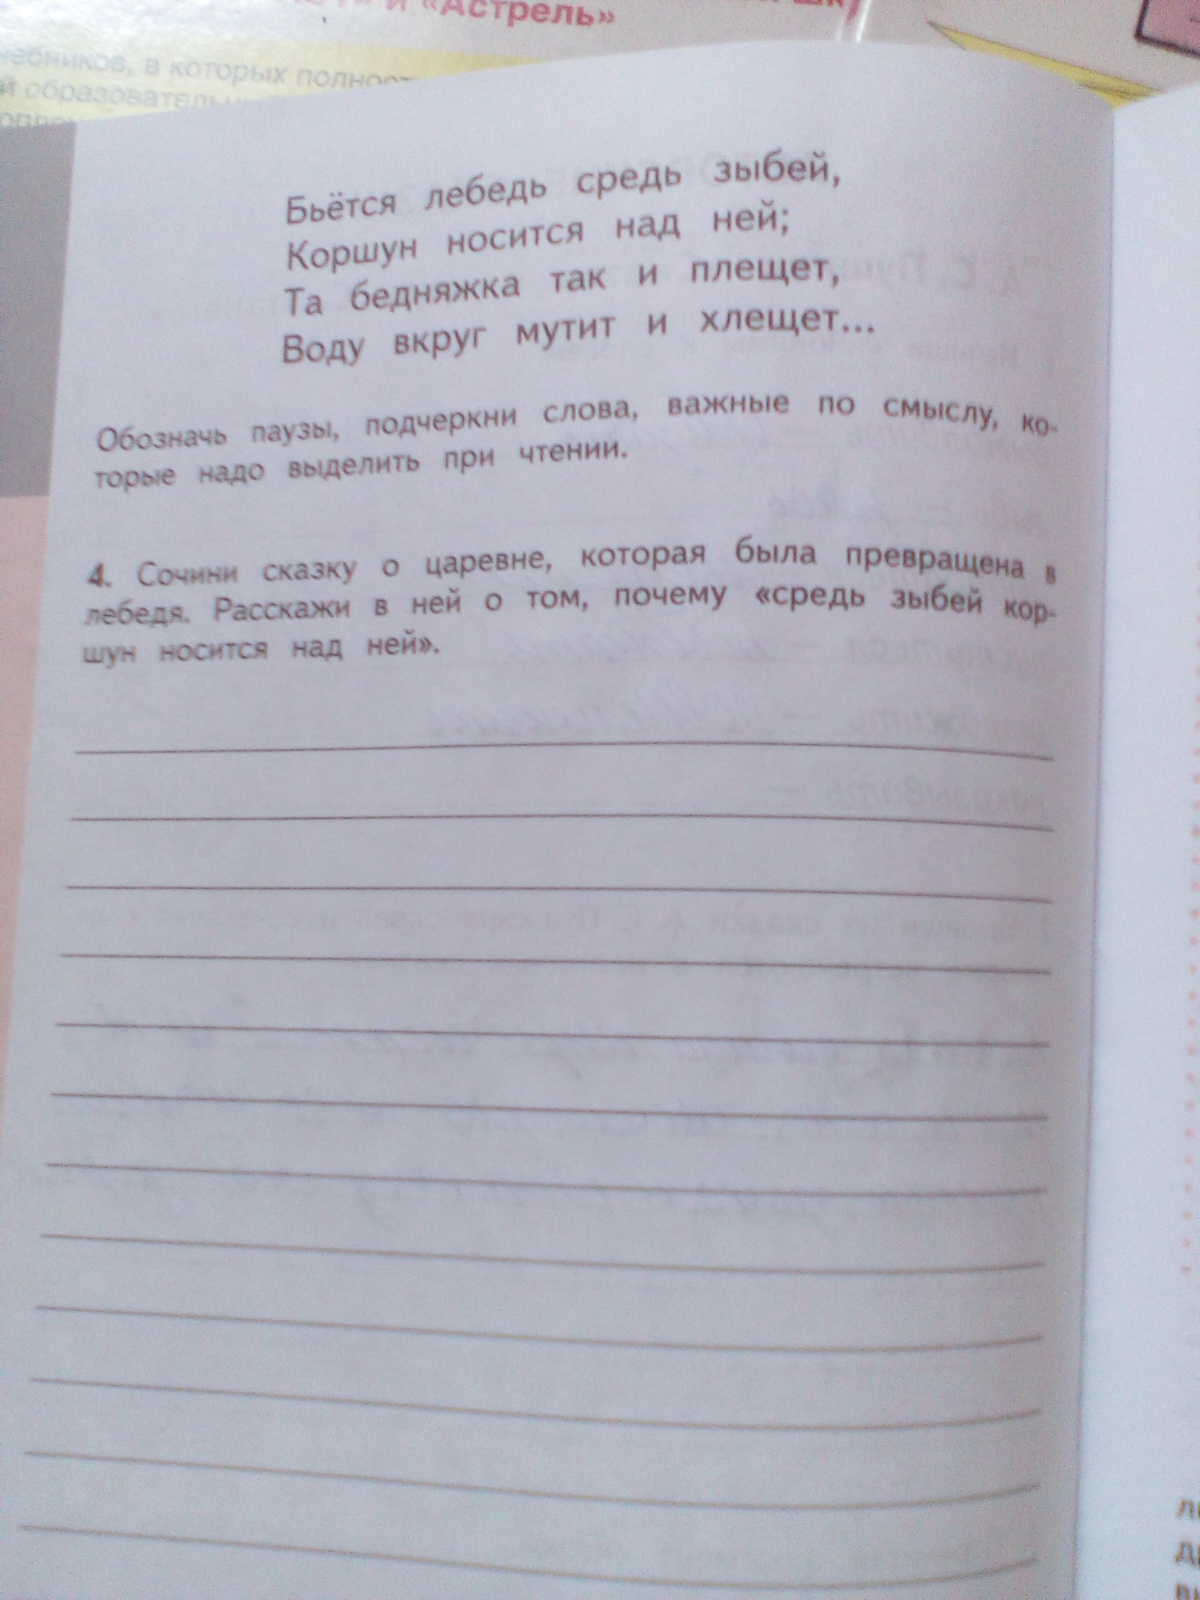 и «Астрель»
в которых
Бьётся лебедь средь зыбей,
Коршун носится над ней;
Та бедняжка так и плещет,
Воду вкруг мутит и хлещет...
Обозначь паузы, подчеркни слова, важные по смыслу, ко-
торые надо выделить при чтении.
4. Сочини сказку о царевне, которая была превращена в
лебедя. Расскажи в ней о том, почему «средь зыбей кор-
шун носится над ней».